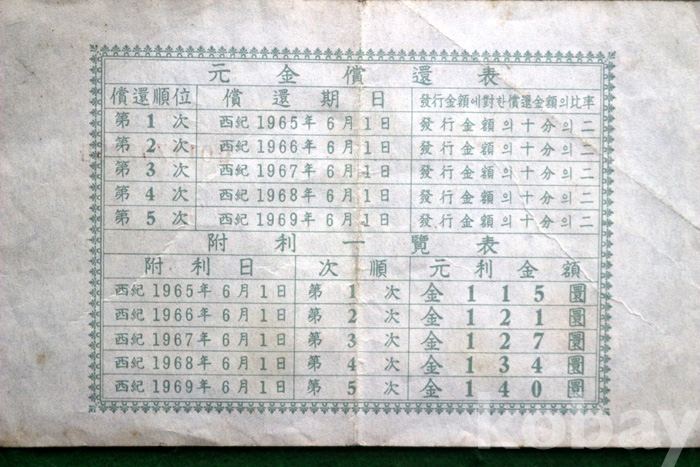 元金償還表
償還順位 償還期日 發行金額에對한償還金額의比率
第1次 西紀1965年6月1日 發行金額의十分의二
第2次 西紀1966年6月1日 發行金額의十分의二
第3次 西紀1967年6月1日 發行金額의十分의二
第4次 西紀1968年6月1日 發行金額의十分의二
第5次 西紀1969年6月1日 發行金額의十分의二
附利一覽表
附利日 次順 元利金額
西紀1965年6月1日 第1次 金115圜
西紀1966年6月1日 第2次 金121圜
西紀1967年6月1日 第3次 金127圜
西紀1968年6月1日 第4次 金134圜
西紀1969年6月1日 第5次 金140圜
kobay